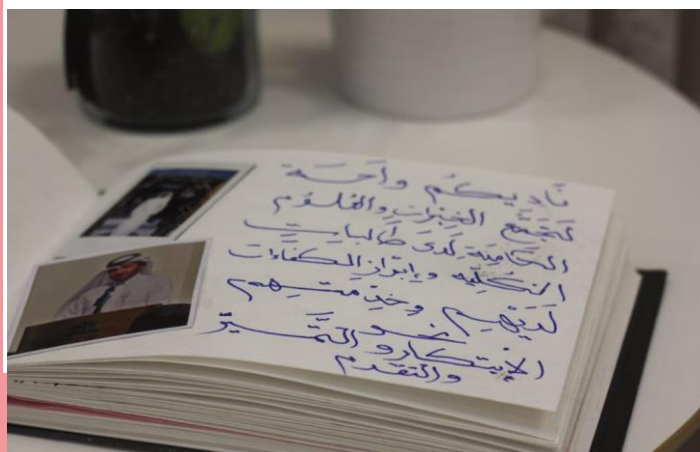 ناديكم واحة
تجمع الخبرات والعلوم
الكامنة لدى طالبات
الكلية وإبراز الكفاءات
لديهم وخدمتهم
نحو
الإبتكار والتميز
والتقدم